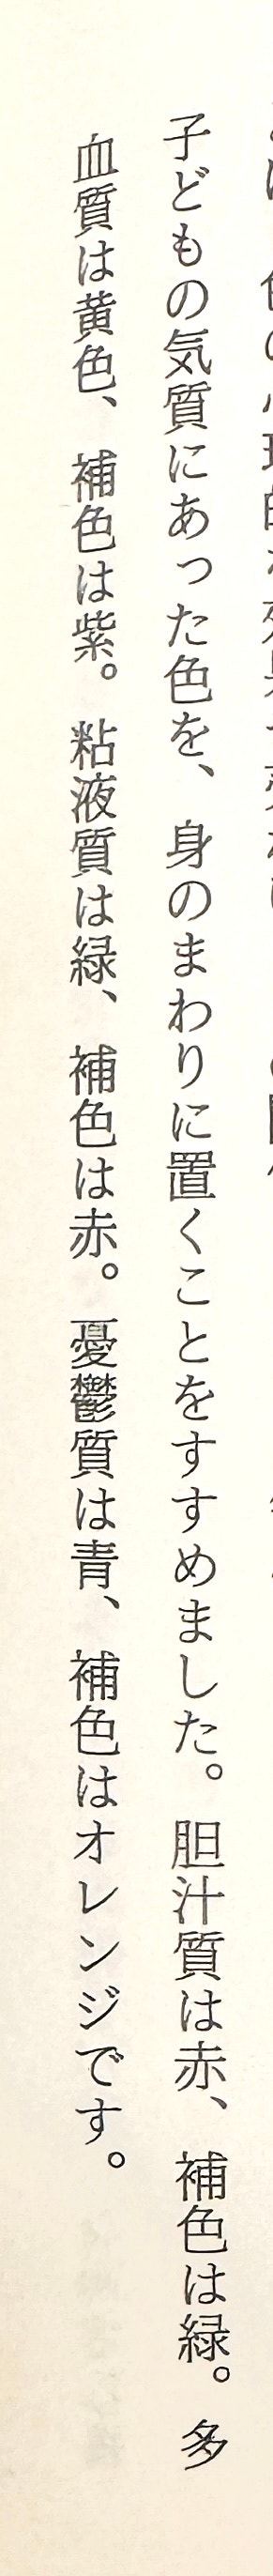 子どもの気質にあった色を、身のまわりに置くことをすすめました。胆汁質は赤、補色は緑。多
血質は黄色、補色は紫。粘液質は緑、補色は赤。憂鬱質は青、補色はオレンジです。